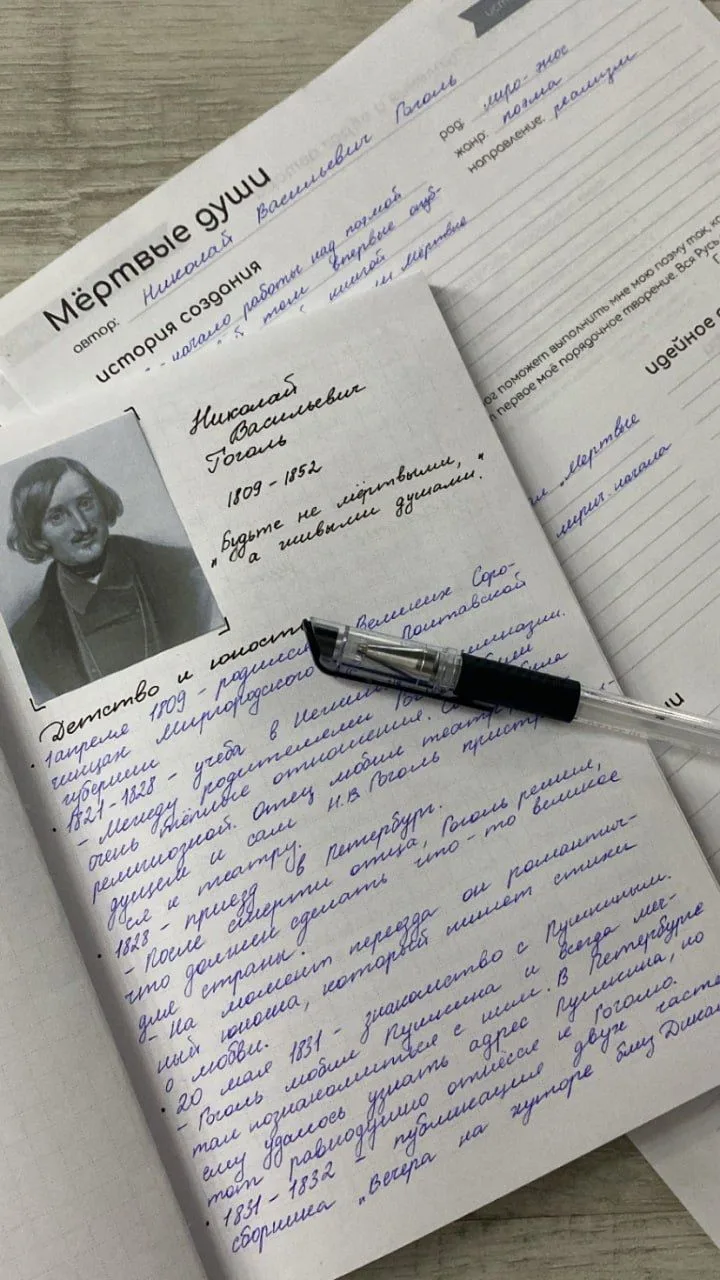 Мёртвые души
автор: Николай Васильевич Гоголь
род: лиро-эпос
жанр: поэма
направление: реализм
история создания
начало работы над поэмой
том впервые опуб-
книгой
мёртвые
ог поможет выполнить мне мою поэму так, ко
первое моё порядочное творение. Вся Русь
идейное
"Мертвые
лирич. начала
Николай
Васильевич
Гоголь
1809 - 1852
"Будьте не мёртвыми,
а живыми душами."
Детство и юность
• 1 апреля 1809 - родился Великих Соро-
чинцах Миргородского Полтавской
губернии
• 1821-1828 - учёба в гимназии.
- Между родителями
очень тёплые отношения.
религиозной. Отец любил театр
дущем и сам Н.В Гоголь пристр
ся к театру.
• 1828 - приезд в Петербург.
- После смерти отца, Гоголь решил,
что должен сделать что-то великое
для страны.
- На момент переезда он романтич-
ный юноша, который пишет стихи
о любви.
• 20 мая 1831 - знакомство с Пушкиным.
- Гоголь любил Пушкина и всегда меч-
тал познакомиться с ним. В Петербурге
ему удалось узнать адрес Пушкина, но
тот равнодушно отнёсся к Гоголю.
• 1831-1832 - публикация двух часте
сборника "Вечера на хуторе близ Дикан